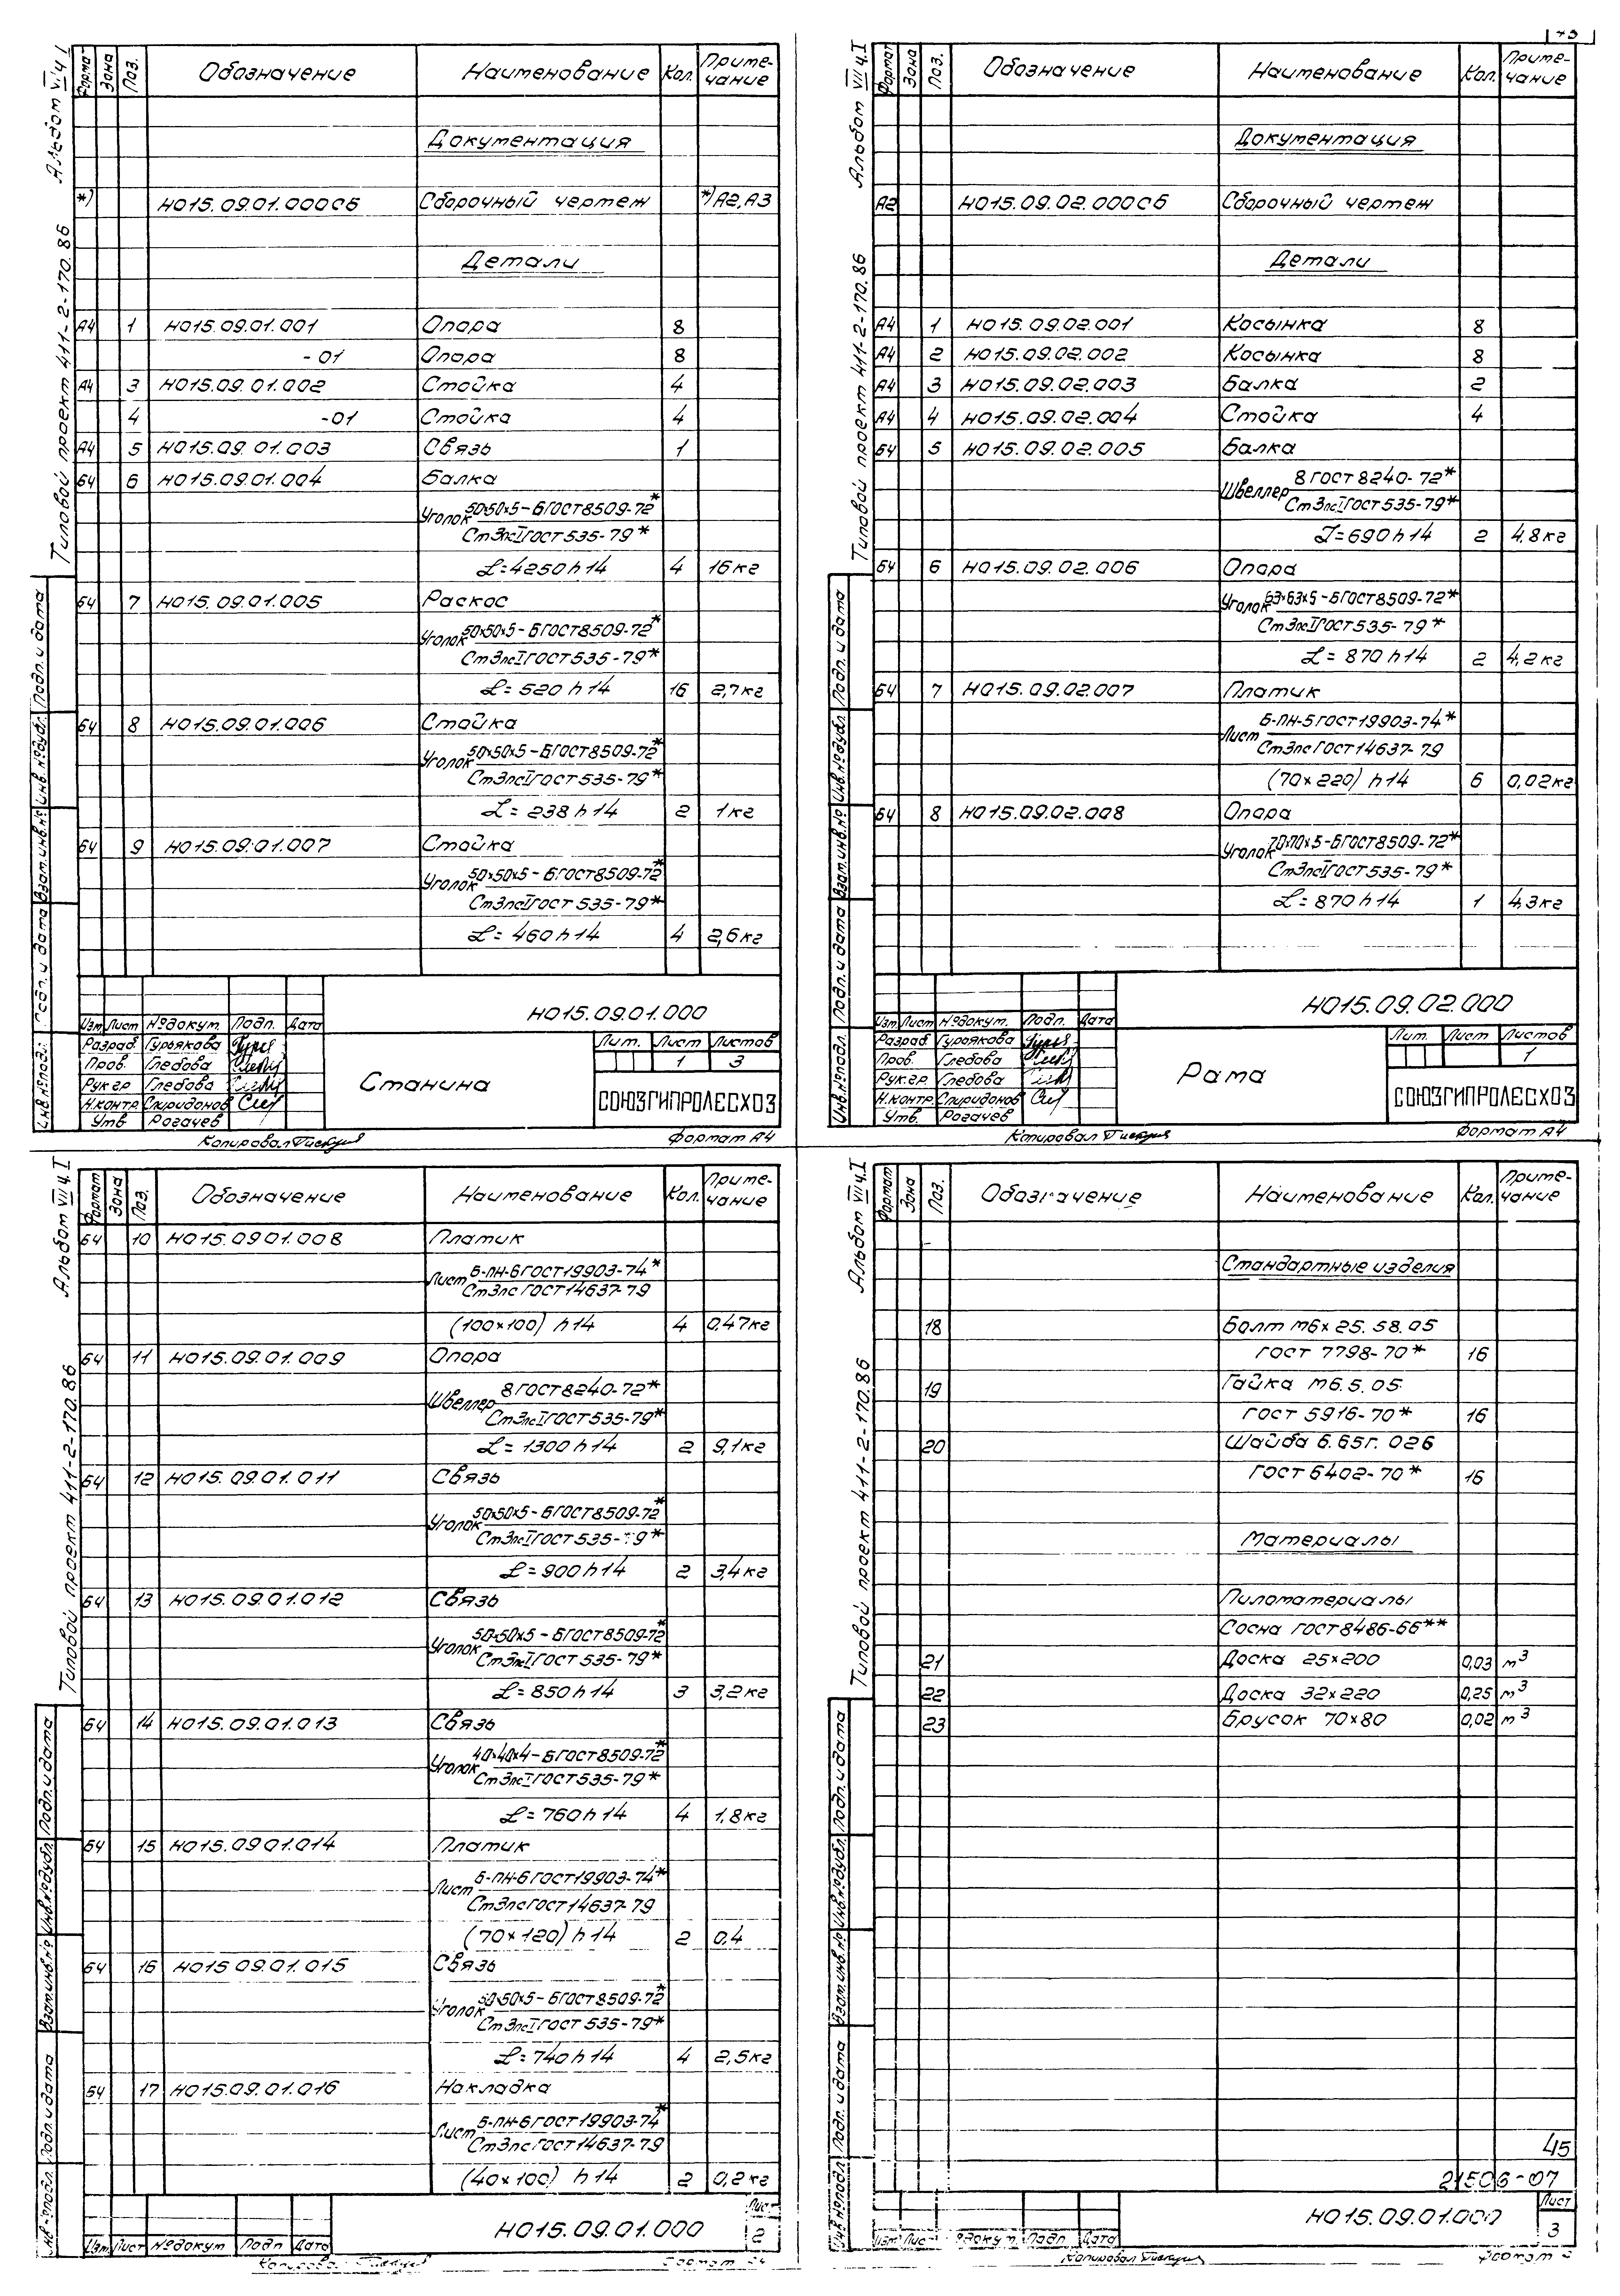 Альбом VII ч.I
Типовой проект 411-2-170.86
Формат Зона Поз. Обозначение Наименование Кол. Приме-
чание
Документация
*) НО15.09.01.000СБ Сборочный чертеж *) А2,А3
Детали
А4 1 НО15.09.01.001 Опора 8
-01 Опора 8
А4 3 НО15.09.01.002 Стойка 4
4 -01 Стойка 4
А4 5 НО15.09.01.003 Связь 1
БЧ 6 НО15.09.01.004 Балка
Уголок 50х50х5-Б ГОСТ 8509-72*
Ст3псI ГОСТ 535-79*
L=4250h14 4 16кг
БЧ 7 НО15.09.01.005 Раскос
Уголок 50х50х5-Б ГОСТ 8509-72*
Ст3псI ГОСТ 535-79*
L=520h14 16 2,7кг
БЧ 8 НО15.09.01.006 Стойка
Уголок 50х50х5-Б ГОСТ 8509-72*
Ст3псI ГОСТ 535-79*
L=238h14 2 1кг
БЧ 9 НО15.09.01.007 Стойка
Уголок 50х50х5-Б ГОСТ 8509-72*
Ст3псI ГОСТ 535-79*
L=460h14 4 2,6кг
Инв.№подл. Подп. и дата Взам.инв.№ Инв.№дубл. Подп. и дата
НО15.09.01.000
Изм Лист №докум. Подп. Дата
Разраб. Гурьякова
Пров. Глебова
Рук.гр. Глебова
Н.контр. Спиридонов
Утв. Рогачев
Станина
Лит. Лист Листов
1 3
СОЮЗГИПРОЛЕСХОЗ
Копировал
Формат А4
Альбом VII ч.I
Типовой проект 411-2-170.86
Формат Зона Поз. Обозначение Наименование Кол. Приме-
чание
Документация
А2 НО15.09.02.000СБ Сборочный чертеж
Детали
А4 1 НО15.09.02.001 Косынка 8
А4 2 НО15.09.02.002 Косынка 8
А4 3 НО15.09.02.003 Балка 2
А4 4 НО15.09.02.004 Стойка 4
БЧ 5 НО15.09.02.005 Балка
Швеллер 8 ГОСТ 8240-72*
Ст3псI ГОСТ 535-79*
L=690h14 2 4,8кг
БЧ 6 НО15.09.02.006 Опора
Уголок 63х63х5-Б ГОСТ 8509-72*
Ст3псI ГОСТ 535-79*
L=870h14 2 4,2кг
БЧ 7 НО15.09.02.007 Платик
Лист Б-ПН-5 ГОСТ 19903-74*
Ст3пс ГОСТ 14637-79
(70х220) h14 6 0,02кг
БЧ 8 НО15.09.02.008 Опора
Уголок 70х70х5-Б ГОСТ 8509-72*
Ст3псI ГОСТ 535-79*
L=870h14 1 4,3кг
Инв.№подл. Подп. и дата Взам.инв.№ Инв.№дубл. Подп. и дата
НО15.09.02.000
Изм Лист №докум. Подп. Дата
Разраб. Гурьякова
Пров. Глебова
Рук.гр. Глебова
Н.контр. Спиридонов
Утв. Рогачев
Рама
Лит. Лист Листов
1
СОЮЗГИПРОЛЕСХОЗ
Копировал
Формат А4
Альбом VII ч.I
Типовой проект 411-2-170.86
Формат Зона Поз. Обозначение Наименование Кол. Приме-
чание
БЧ 10 НО15.09.01.008 Платик
Лист Б-ПН-6 ГОСТ 19903-74*
Ст3пс ГОСТ 14637-79
(100х100) h14 4 0,47кг
БЧ 11 НО15.09.01.009 Опора
Швеллер 8 ГОСТ 8240-72*
Ст3псI ГОСТ 535-79*
L=1300h14 2 9,1кг
БЧ 12 НО15.09.01.011 Связь
Уголок 50х50х5-Б ГОСТ 8509-72*
Ст3псI ГОСТ 535-79*
L=900h14 2 3,4кг
БЧ 13 НО15.09.01.012 Связь
Уголок 50х50х5-Б ГОСТ 8509-72*
Ст3псI ГОСТ 535-79*
L=850h14 3 3,2кг
БЧ 14 НО15.09.01.013 Связь
Уголок 40х40х4-Б ГОСТ 8509-72*
Ст3псI ГОСТ 535-79*
L=760h14 4 1,8кг
БЧ 15 НО15.09.01.014 Платик
Лист Б-ПН-6 ГОСТ 19903-74*
Ст3пс ГОСТ 14637-79
(70х120) h14 2 0,4
БЧ 16 НО15.09.01.015 Связь
Уголок 50х50х5-Б ГОСТ 8509-72*
Ст3псI ГОСТ 535-79*
L=740h14 4 2,5кг
БЧ 17 НО15.09.01.016 Накладка
Лист Б-ПН-6 ГОСТ 19903-74*
Ст3пс ГОСТ 14637-79
(40х100) h14 2 0,2кг
Подп. и дата Взам.инв.№ Инв.№дубл. Подп. и дата
Изм Лист №докум Подп Дата
НО15.09.01.000
Лист
2
Альбом VII ч.I
Типовой проект 411-2-170.86
Формат Зона Поз. Обозначение Наименование Кол. Приме-
чание
Стандартные изделия
18 Болт М6х25.58.05
ГОСТ 7798-70* 16
19 Гайка М6.5.05
ГОСТ 5916-70* 16
20 Шайба 6.65Г.026
ГОСТ 6402-70* 16
Материалы
Пиломатериалы
Сосна ГОСТ 8486-66**
21 Доска 25х200 0,03 м3
22 Доска 32х220 0,25 м3
23 Брусок 70х80 0,02 м3
Инв.№подл Подп. и дата Взам.инв.№ Инв.№дубл. Подп. и дата
45
21506-07
Изм Лист №докум. Подп. Дата
НО15.09.01.000
Лист
3
Копировал
Формат